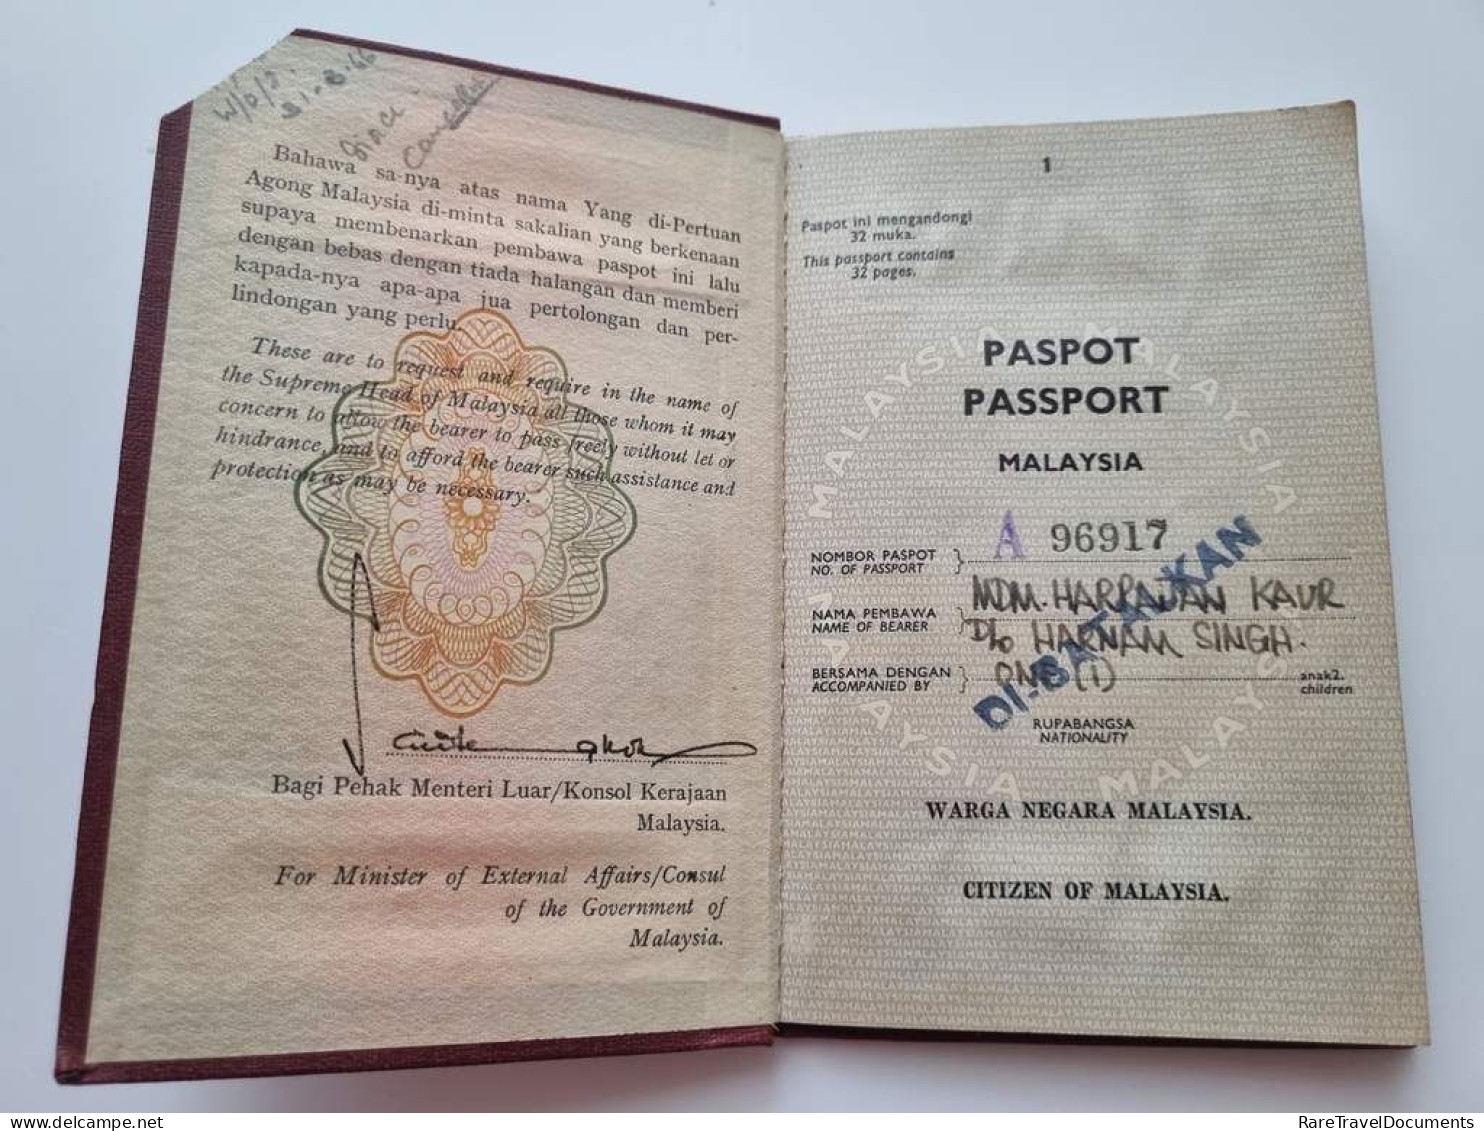 W/O/S.
31-3-66
Cancelled
Bahawa sa-nya atas nama Yang di-Pertuan
Agong Malaysia di-minta sakalian yang berkenaan
supaya membenarkan pembawa paspot ini lalu
dengan bebas dengan tiada halangan dan memberi
kapada-nya apa-apa jua pertolongan dan per-
lindongan yang perlu.
These are to request and require in the name of
the Supreme Head of Malaysia all those whom it may
concern to allow the bearer to pass freely without let or
hindrance, and to afford the bearer such assistance and
protection as may be necessary.
Bagi Pehak Menteri Luar/Konsol Kerajaan
Malaysia.
For Minister of External Affairs/Consul
of the Government of
Malaysia.
1
Paspot ini mengandongi
32 muka.
This passport contains
32 pages.
PASPOT
PASSPORT
MALAYSIA
NOMBOR PASPOT
NO. OF PASSPORT
A 96917
NAMA PEMBAWA
NAME OF BEARER
MDM. HARPAJAN KAUR
D/o HARNAM SINGH.
BERSAMA DENGAN
ACCOMPANIED BY
ONE (1)
anak2.
children
DI-BATALKAN
RUPABANGSA
NATIONALITY
WARGA NEGARA MALAYSIA.
CITIZEN OF MALAYSIA.
MALAYSIA MALAYSIA MALAYSIA MALAYSIA
delcampe.net
RareTravelDocuments